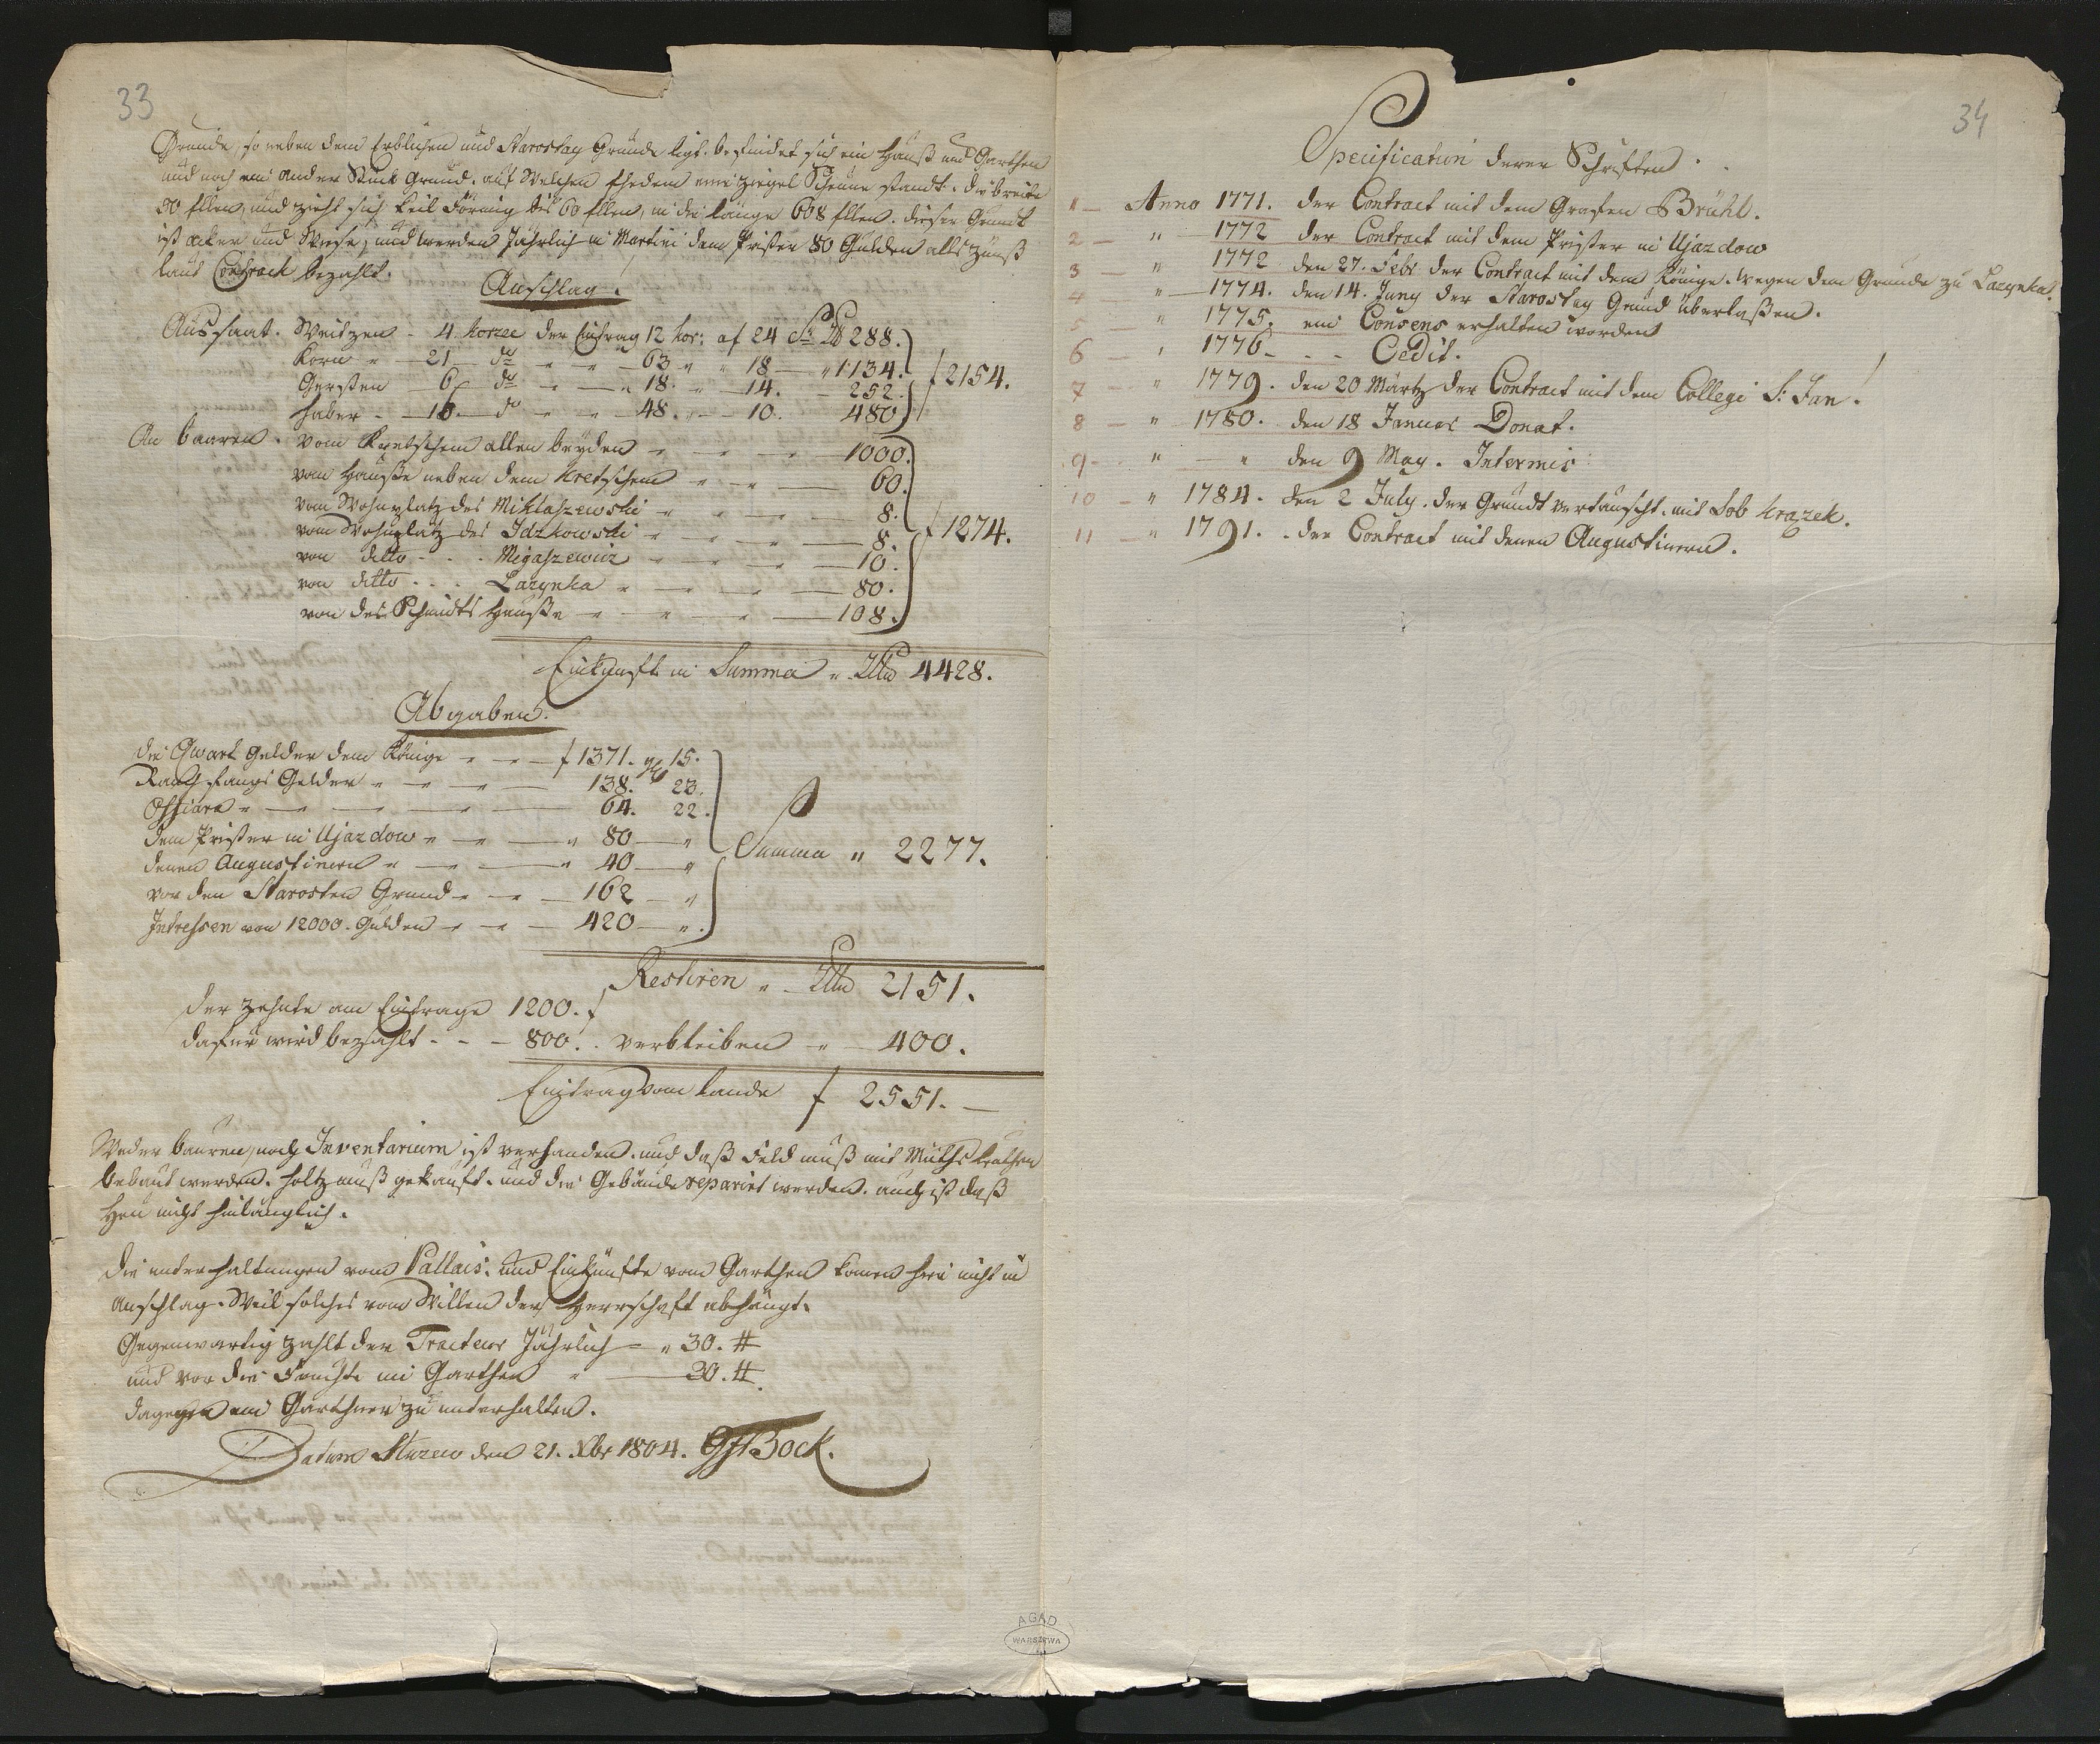 33
Grunde, so neben dem Erblichen und Starostey Grunde ligt. befindet sich ein Hauß und Garthen
und noch ein ander Stück Grund. auf Welchen Ehedem eine Ziegel Scheune standt. die breite
90 Ellen, und zieht sich Keil Förmig bis 60 Ellen, in die länge 608 Ellen. dieser Grundt
ist acker und Wiese, und werden Jährlich in Martini dem Prister 80 Gulden allß Zünß
laut Contract bezahlt.
Anschlag.
Aussaat. Weitzen - 4. korzec der Eintrag 12 kor: af 24 288.
Korn " — 21 — do — " — 63 " " 18 — " 1134.
Gersten — 6 — do " — " 18. " — 14. — 252.
f 2154.
Haber - — 16 — do " " — 48. — 10. 480
An baaren. vom Kretschem allen beyden " — " — 1000.
vom Hausse neben dem Kretschem " — " — 60.
vom Wohnplatz des Miklaszewski " — " — 8.
f 1274.
vom Wohnplatz des Idzkowski " — " — 8.
von ditto - . . Migaszewicz — " — 10.
von ditto . . . Lazynka " — " — 80.
von des Schmidts Hausse " — " — 108.
Einkünfte in Summa " 4428.
Abgaben.
die Qwart Gelder dem Könige " — " — f 1371. 15.
Rauch fangs Gelder " — " — 138. 23.
Offiara " — — — 64. 22.
dem Prister in Ujazdow " — " — " 80 — "
Summa " 2277.
denen Augustinern " — " — " 40 — "
vor den Starosten Grund " — " — 162 — "
Intressen von 12000. Gulden " — " — 420 — ".
Restiren " 2151.
der Zehnte am Eintrage 1200. f
dafür wird bezahlt . - - 800. . verbleiben " — 400.
Eintrag vom Lande f 2551. —
Weder bauren, noch Inventarium ist verhanden. und daß Feld muß mit Mieths leuthen
bebaut werden. Holtz muß gekauft. und die Gebäude reparirt werden. auch ist daß
Heu nicht hinlänglich.
Die unterhaltungen vom Pallais. und Einkünfte vom Garthen komen hier nicht in
Anschlag. Weil solches vom Willen der Herrschaft abhängt.
Gegenwartig zahlt der Traiteur Jährlich — " 30. #
und vor die Früchte im Garthen " — 30. #.
dagegen ein Garthner zu unterhalten.
Datum den 21. Xbr 1804. Bock.
34
Specification derer Schriften.
1 — Anno 1771. der Contract mit dem Grafen Brühl.
2 — " 1772 der Contract mit dem Prister in Ujazdow
3 — " 1772 den 27. Febr der Contract mit dem Könige. wegen dem Grunde zu Lazynka.
4 " — 1774. den 14. Juny der Starostey Grund überlaßen.
5 " 1775. ein Consens erhalten worden
6 — " 1776 - . - Cedit.
7 — " 1779. den 20 Märtz der Contract mit dem Collegi S: Jan.
8 — " 1780. den 18 Januar Donat.
9 - " — " den 9 May. Intermis
10 — " 1784. den 2 July. der Grundt vertauscht. mit Lob Krazek.
11 — " 1791. . der Contract mit denen Augustinern.
AGAD
WARSZAWA